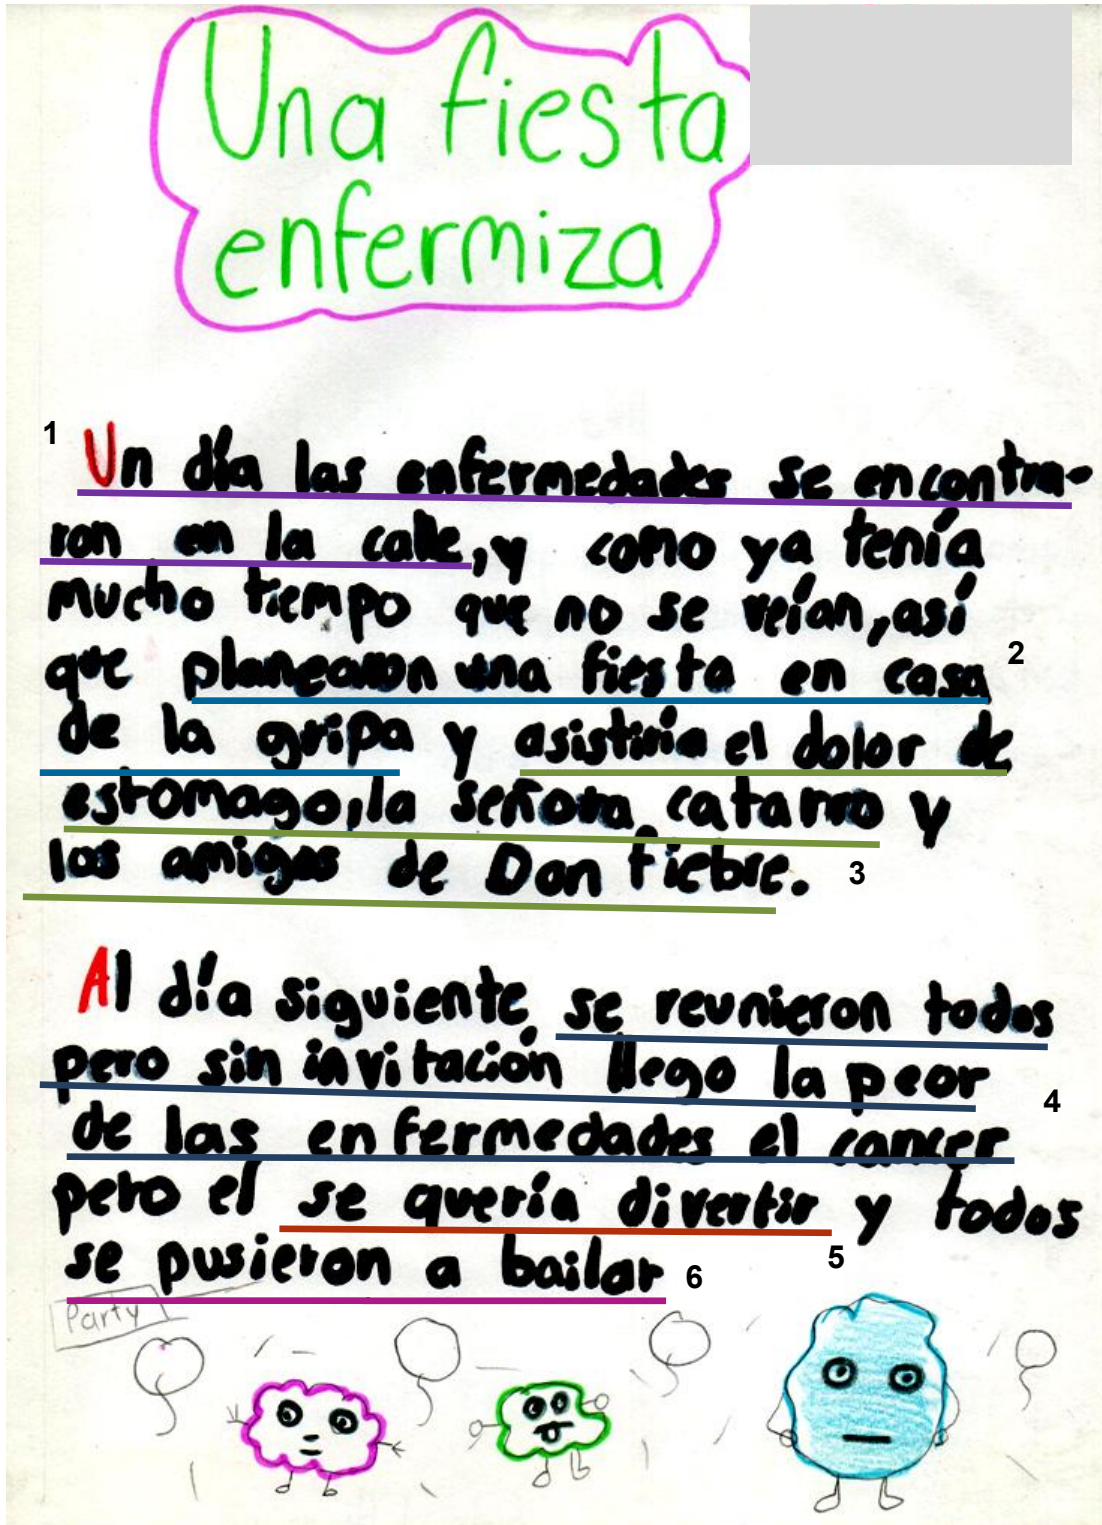 Una fiesta
enfermiza
1
Un día las enfermedades se encontra-
ron en la calle, y como ya tenía
mucho tiempo que no se veían, así
que planearon una fiesta en casa 2
de la gripa y asistiría el dolor de
estomago, la señora catarro y
los amigos de Don fiebre. 3
Al día siguiente se reunieron todos
pero sin invitación llego la peor
de las enfermedades el cancer 4
pero el se quería divertir y todos
se pusieron a bailar 6 5
Party